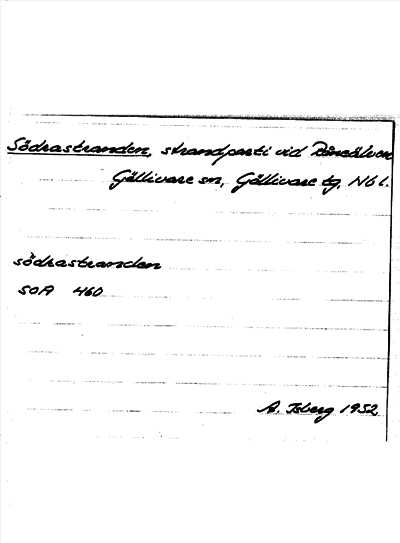 Södrastranden, strandparti vid Råneälven
Gällivare sn, Gällivare tg, Nbl.
södrastranden
SOA 460
A. Isberg 1952